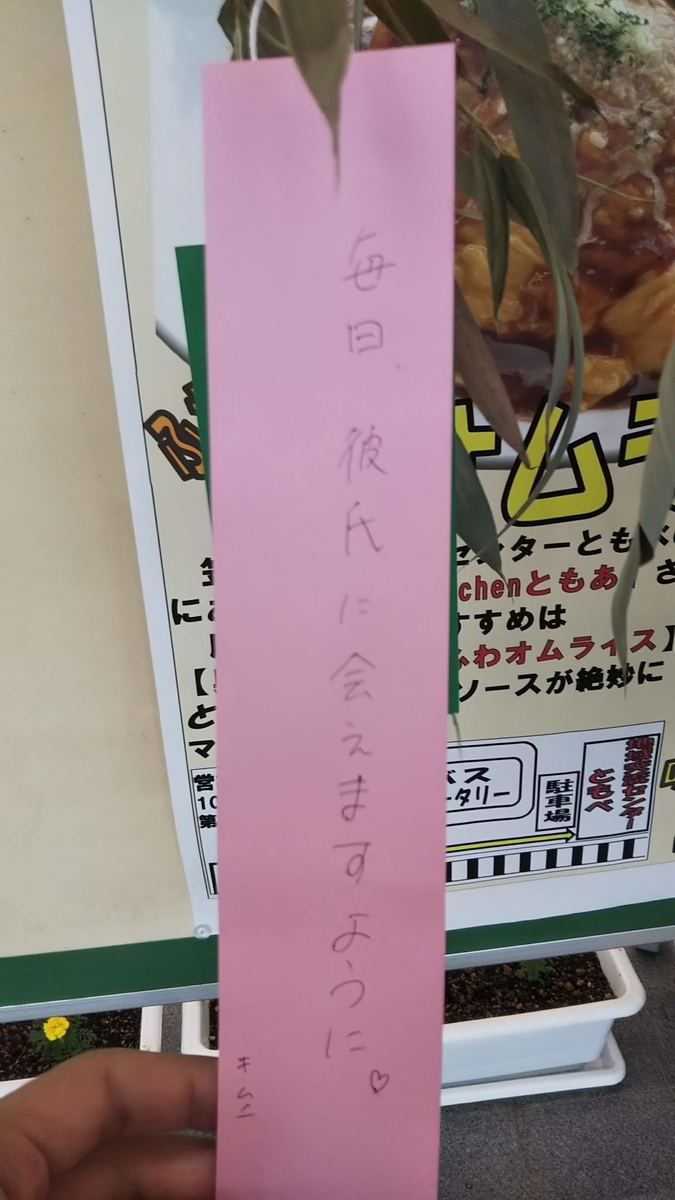 毎日、彼氏に会えますように♡
キムニ
オムラ
センターともべの
chenともあ
さ
にあ
すすめは
ふわオムライス】
【
ソースが絶妙に
と
マ
営
10
第
バス
ータリー
駐車場
地域交流センター
ともべ